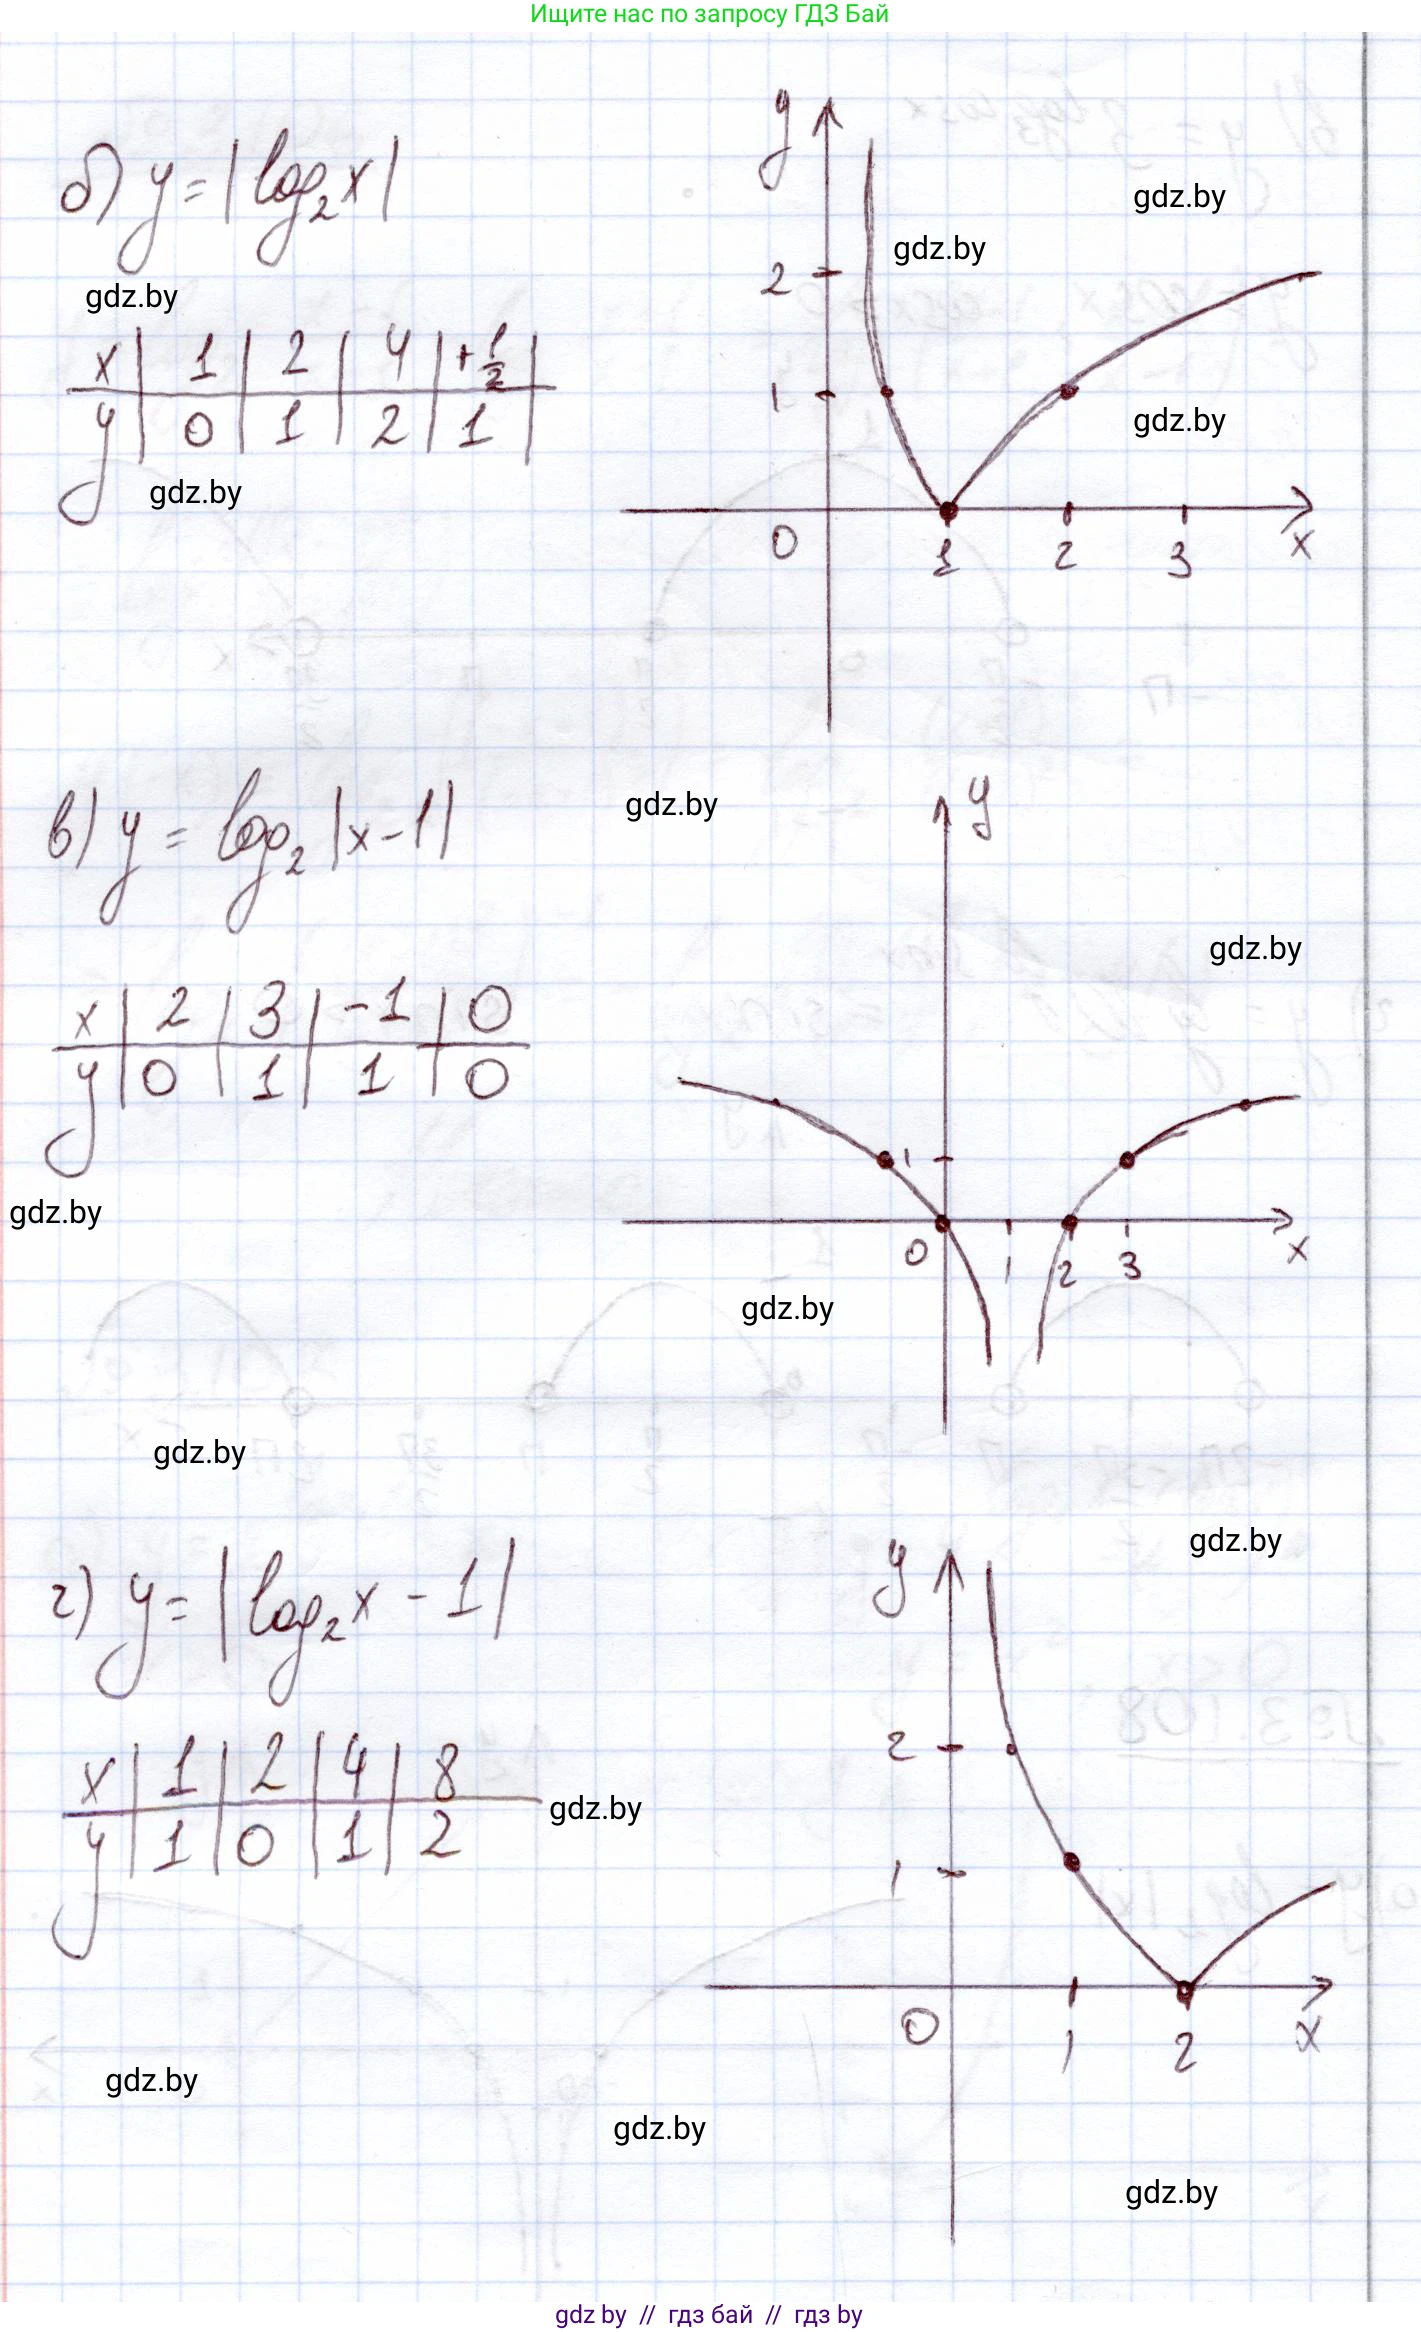 Ищите нас по запросу ГДЗ Бай
б) y = |log₂x|
gdz.by
x | 1 | 2 | 4 | +1/2 |
y | 0 | 1 | 2 | 1 |
gdz.by
y
2
1
0 1 2 3 x
gdz.by
gdz.by
gdz.by
в) y = log₂|x-1|
gdz.by
x | 2 | 3 | -1 | 0
y | 0 | 1 | 1 | 0
gdz.by
y
gdz.by
1
0 1 2 3 x
gdz.by
gdz.by
г) y = |log₂x - 1|
gdz.by
x | 1 | 2 | 4 | 8
y | 1 | 0 | 1 | 2
gdz.by
y
2
1
0 1 2 x
gdz.by
gdz.by
gdz.by
gdz by // гдз бай // гдз by